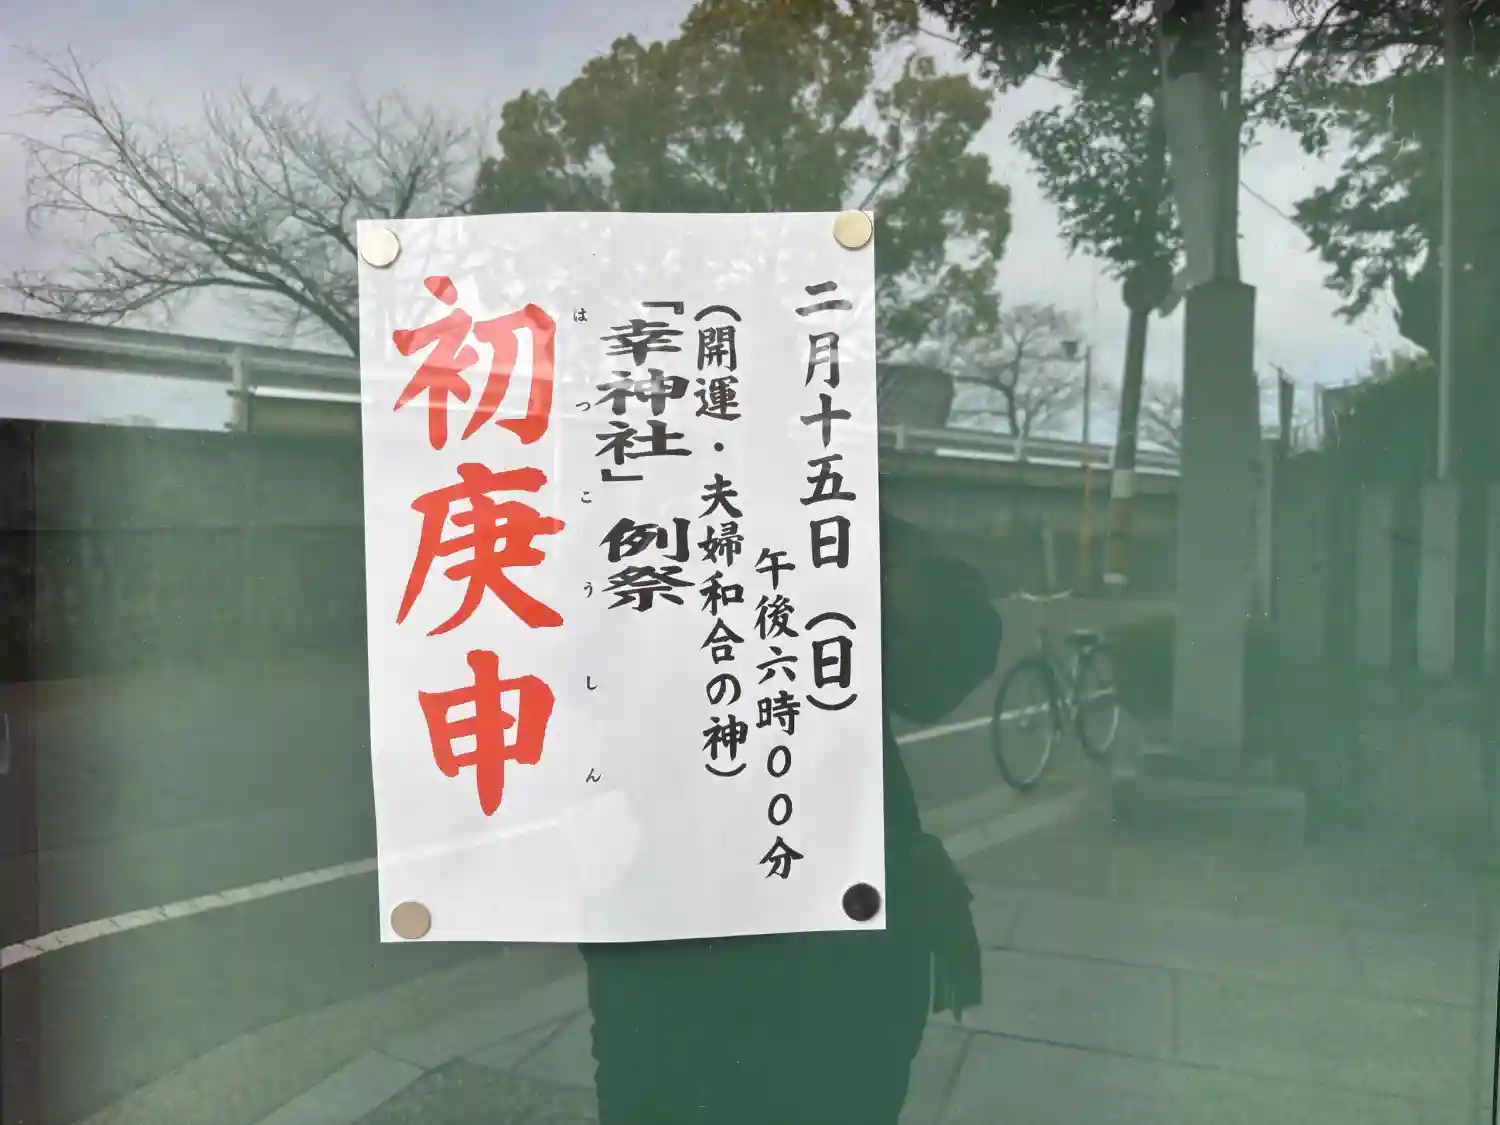 二月十五日（日）
午後六時００分
（開運・夫婦和合の神）
「幸神社」例祭
はつこうしん
初庚申